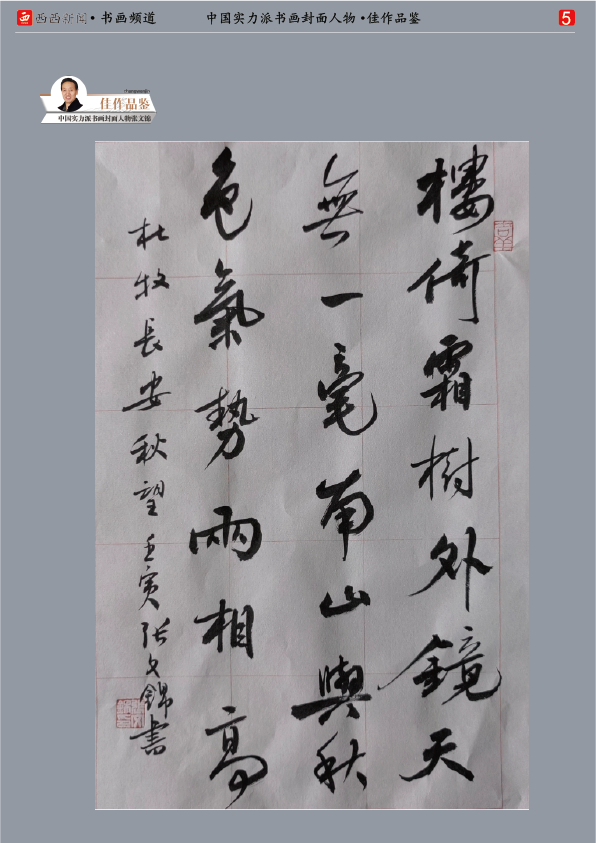 西西新闻•书画频道
中国实力派书画封面人物•佳作品鉴
5
佳作品鉴
中国实力派书画封面人物张文锦
樓倚霜樹外鏡天
無一毫南山與秋
色氣勢兩相高
杜牧長安秋望壬寅張文錦書